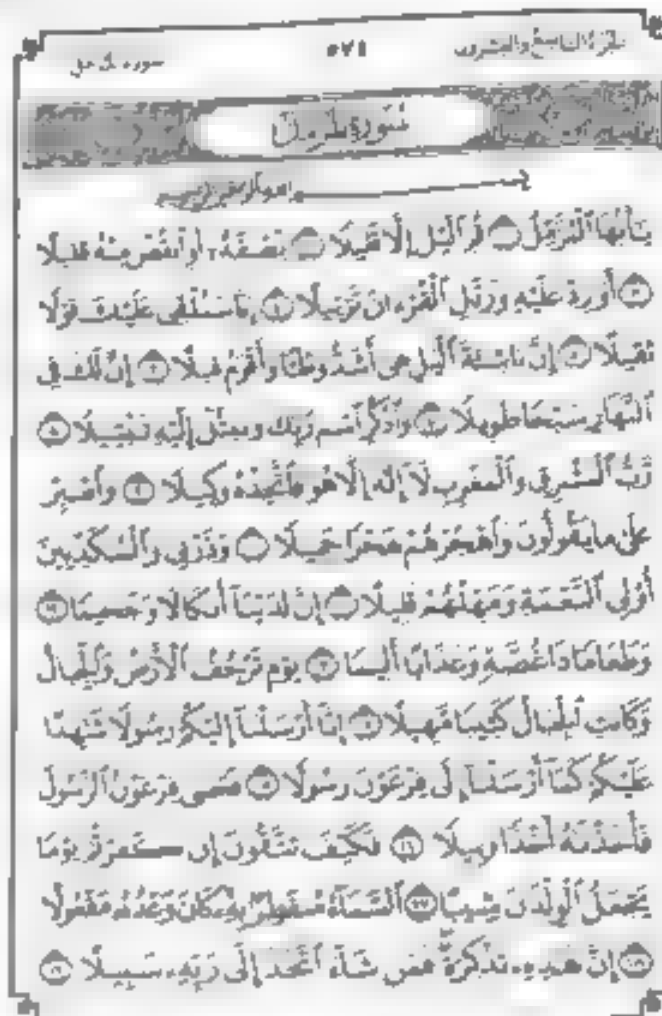 الجزء التاسع والعشرون ٥٧٤ سورة المزمل
سورة المزمل
بسم الله الرحمن الرحيم
يَٰٓأَيُّهَا ٱلْمُزَّمِّلُ ۝١ قُمِ ٱلَّيْلَ إِلَّا قَلِيلًا ۝٢ نِّصْفَهُۥٓ أَوِ ٱنقُصْ مِنْهُ قَلِيلًا
۝٣ أَوْ زِدْ عَلَيْهِ وَرَتِّلِ ٱلْقُرْءَانَ تَرْتِيلًا ۝٤ إِنَّا سَنُلْقِى عَلَيْكَ قَوْلًا
ثَقِيلًا ۝٥ إِنَّ نَاشِئَةَ ٱلَّيْلِ هِىَ أَشَدُّ وَطْـًٔا وَأَقْوَمُ قِيلًا ۝٦ إِنَّ لَكَ فِى
ٱلنَّهَارِ سَبْحًا طَوِيلًا ۝٧ وَٱذْكُرِ ٱسْمَ رَبِّكَ وَتَبَتَّلْ إِلَيْهِ تَبْتِيلًا ۝٨
رَّبُّ ٱلْمَشْرِقِ وَٱلْمَغْرِبِ لَآ إِلَٰهَ إِلَّا هُوَ فَٱتَّخِذْهُ وَكِيلًا ۝٩ وَٱصْبِرْ
عَلَىٰ مَا يَقُولُونَ وَٱهْجُرْهُمْ هَجْرًا جَمِيلًا ۝١٠ وَذَرْنِى وَٱلْمُكَذِّبِينَ
أُو۟لِى ٱلنَّعْمَةِ وَمَهِّلْهُمْ قَلِيلًا ۝١١ إِنَّ لَدَيْنَآ أَنكَالًا وَجَحِيمًا ۝١٢
وَطَعَامًا ذَا غُصَّةٍ وَعَذَابًا أَلِيمًا ۝١٣ يَوْمَ تَرْجُفُ ٱلْأَرْضُ وَٱلْجِبَالُ
وَكَانَتِ ٱلْجِبَالُ كَثِيبًا مَّهِيلًا ۝١٤ إِنَّآ أَرْسَلْنَآ إِلَيْكُمْ رَسُولًا شَٰهِدًا
عَلَيْكُمْ كَمَآ أَرْسَلْنَآ إِلَىٰ فِرْعَوْنَ رَسُولًا ۝١٥ فَعَصَىٰ فِرْعَوْنُ ٱلرَّسُولَ
فَأَخَذْنَٰهُ أَخْذًا وَبِيلًا ۝١٦ فَكَيْفَ تَتَّقُونَ إِن كَفَرْتُمْ يَوْمًا
يَجْعَلُ ٱلْوِلْدَٰنَ شِيبًا ۝١٧ ٱلسَّمَآءُ مُنفَطِرٌۢ بِهِۦ كَانَ وَعْدُهُۥ مَفْعُولًا
۝١٨ إِنَّ هَٰذِهِۦ تَذْكِرَةٌ فَمَن شَآءَ ٱتَّخَذَ إِلَىٰ رَبِّهِۦ سَبِيلًا ۝١٩